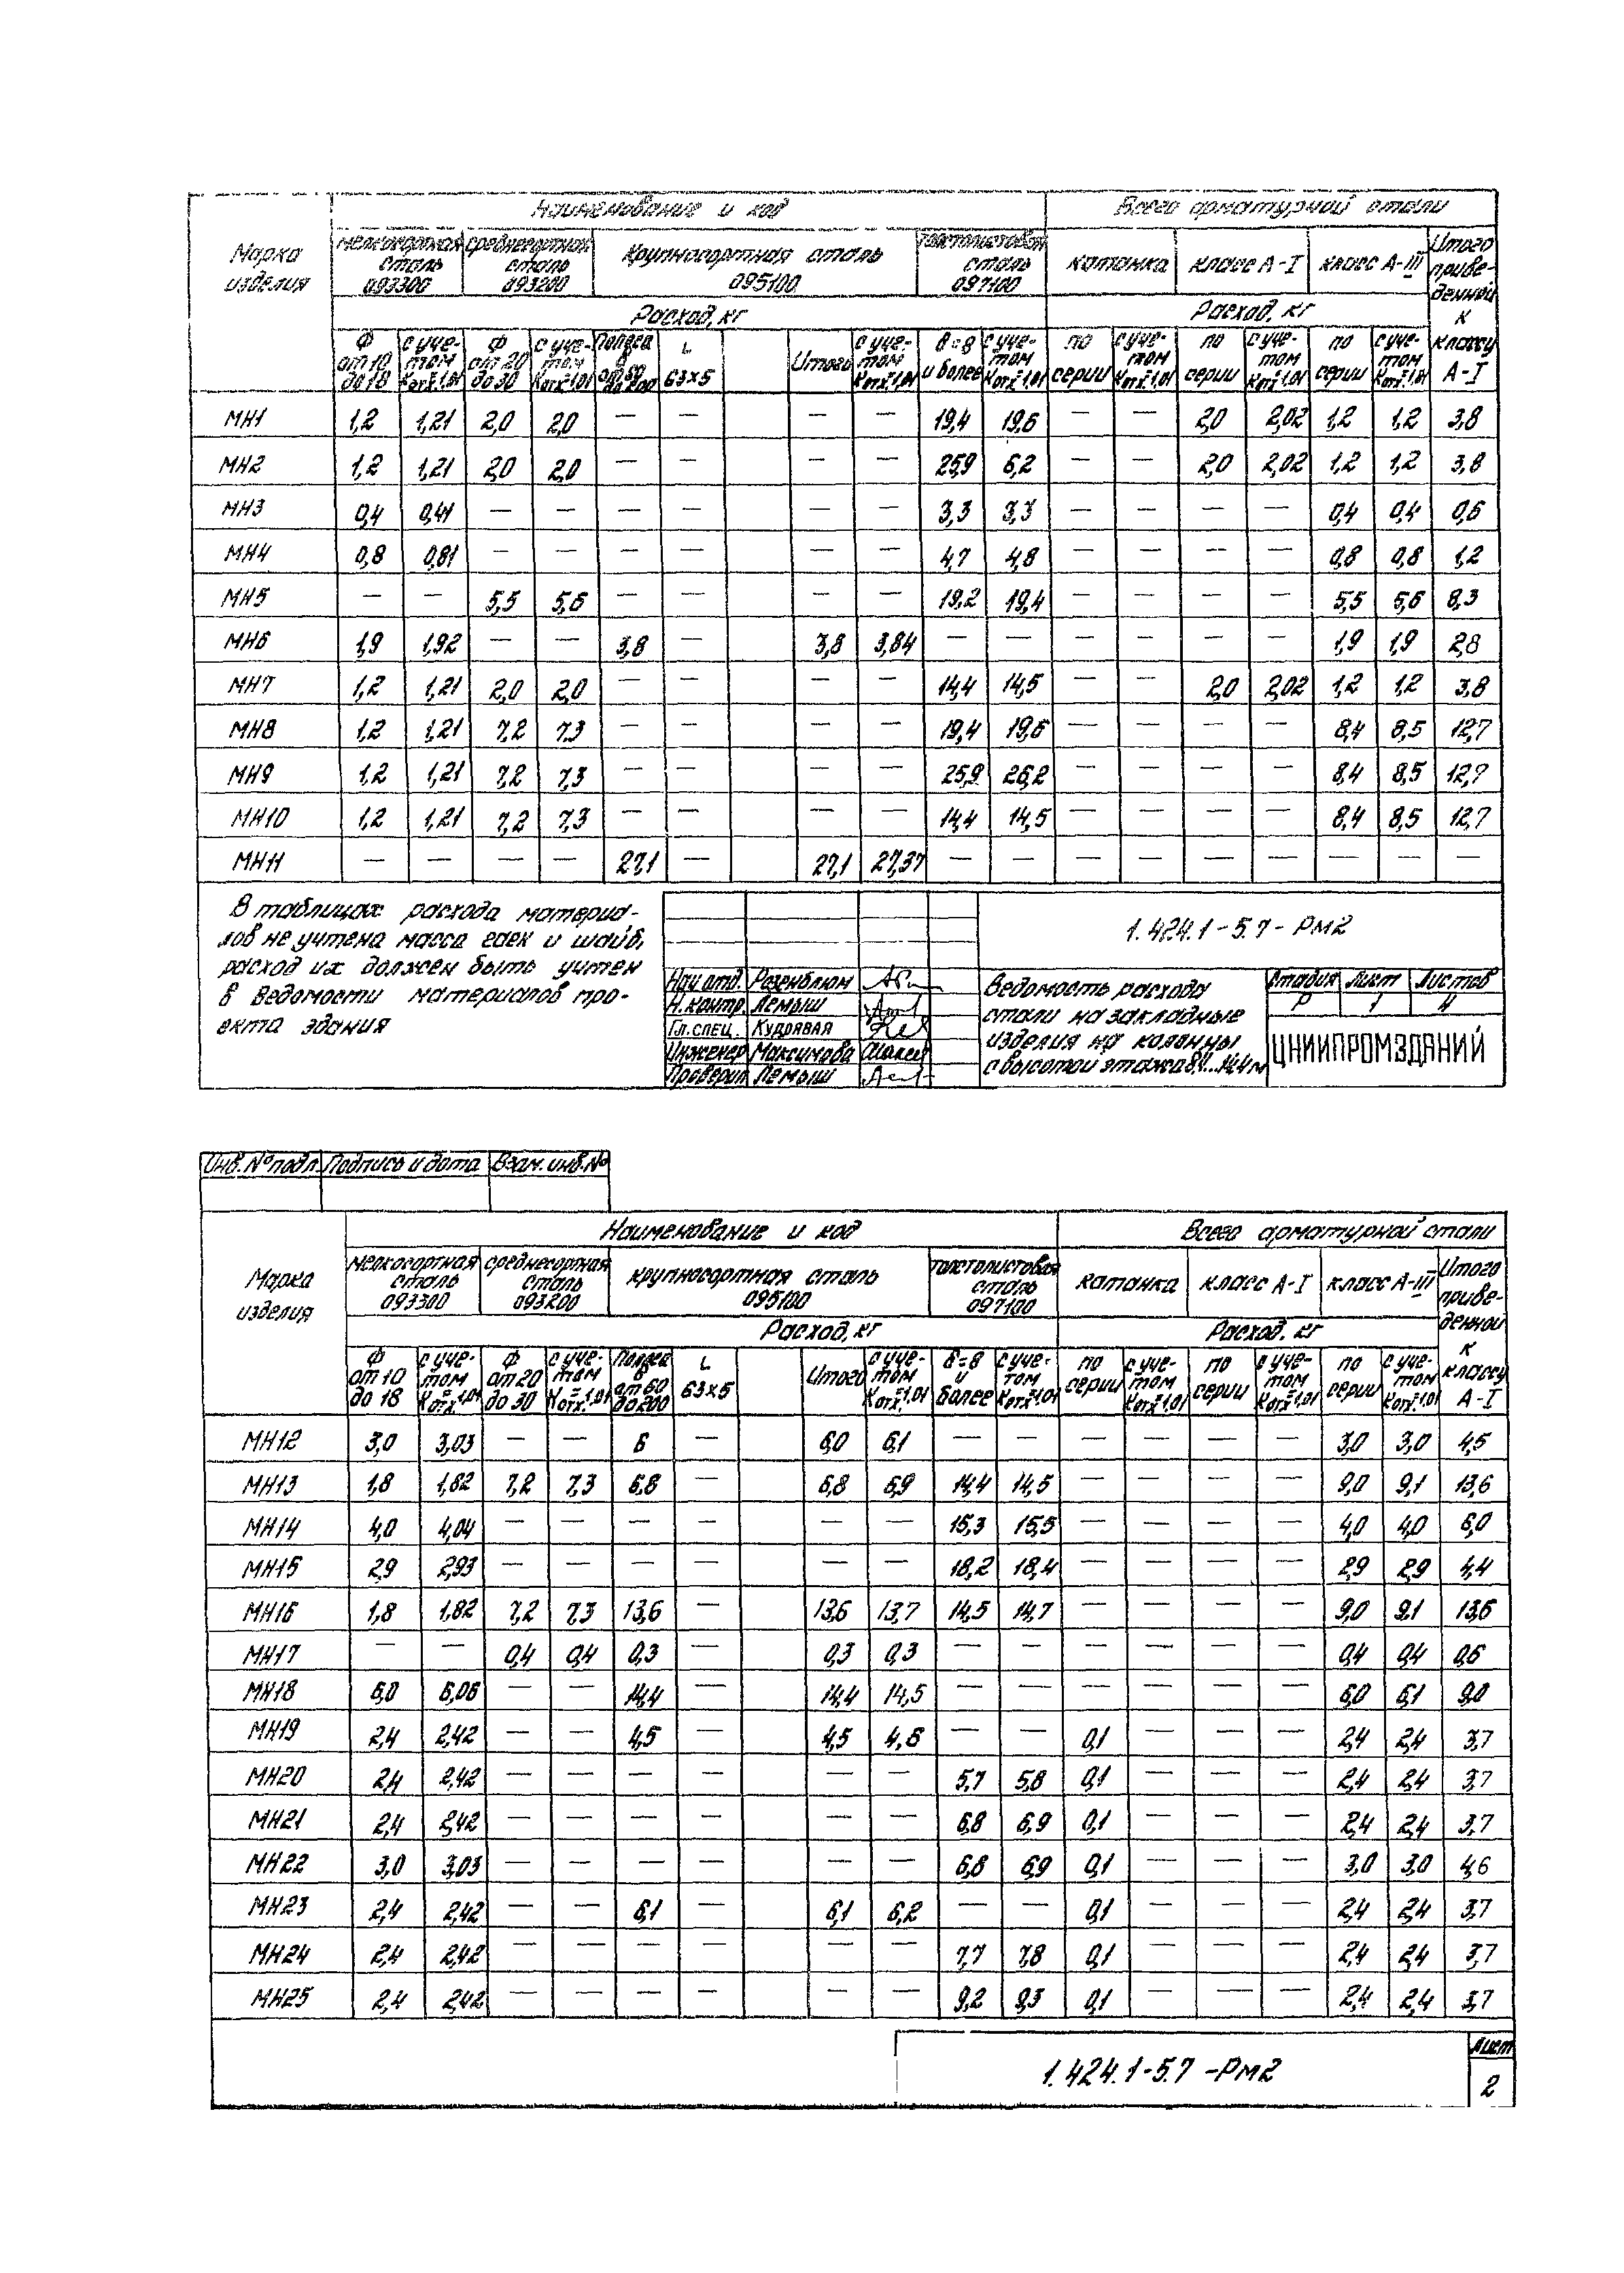 Наименование и код Всего арматурной стали
Марка изделия мелкосортная сталь 093300 среднесортная сталь 093200 Крупносортная сталь 095100 толстолистовая сталь 097100 катанка класс А-I класс А-III Итого приведенной к классу А-I
Расход, кг Расход, кг
Ф от 10 до 18 с учетом Котх.=1,01 Ф от 20 до 30 с учетом Котх.=1,01 Полоса В от 60 до 200 L 63×5 Итого с учетом Котх.=1,01 δ=8 и более с учетом Котх.=1,01 по серии с учетом Котх.=1,01 по серии с учетом Котх.=1,01 по серии с учетом Котх.=1,01
МН1 1,2 1,21 2,0 2,0 — — — — 19,4 19,6 — — 2,0 2,02 1,2 1,2 3,8
МН2 1,2 1,21 2,0 2,0 — — — — 25,9 6,2 — — 2,0 2,02 1,2 1,2 3,8
МН3 0,4 0,41 — — — — — — 3,3 3,3 — — — — 0,4 0,4 0,6
МН4 0,8 0,81 — — — — — — 4,7 4,8 — — — — 0,8 0,8 1,2
МН5 — — 5,5 5,6 — — — — 19,2 19,4 — — — — 5,5 5,6 8,3
МН6 1,9 1,92 — — 3,8 — 3,8 3,84 — — — — — — 1,9 1,9 2,8
МН7 1,2 1,21 2,0 2,0 — — — — 14,4 14,5 — — 2,0 2,02 1,2 1,2 3,8
МН8 1,2 1,21 7,2 7,3 — — — — 19,4 19,6 — — — — 8,4 8,5 12,7
МН9 1,2 1,21 7,2 7,3 — — — — 25,9 26,2 — — — — 8,4 8,5 12,7
МН10 1,2 1,21 7,2 7,3 — — — — 14,4 14,5 — — — — 8,4 8,5 12,7
МН11 — — — — 27,1 — 27,1 27,37 — — — — — — — — —
В таблицах расхода материа-
лов не учтена масса гаек и шайб,
расход их должен быть учтен
в Ведомости материалов про-
екта здания
1.424.1-5.7-Рм2
Нач отд. Розенблюм
Н.контр. Лемыш
Гл.спец. Кудрявая
Инженер Максимова
Проверил Лемыш
Ведомость расхода
стали на закладные
изделия на колонны
с высотой этажа 8,4...14,4 м
Стадия Лист Листов
Р 1 4
ЦНИИПРОМЗДАНИЙ
Инв.№подл. Подпись и дата Взам.инв.№
Наименование и код Всего арматурной стали
Марка изделия мелкосортная сталь 093300 среднесортная сталь 093200 крупносортная сталь 095100 толстолистовая сталь 097100 катанка класс А-I класс А-III Итого приведенной к классу А-I
Расход, кг Расход, кг
Ф от 10 до 18 с учетом Котх.=1,01 Ф от 20 до 30 с учетом Котх.=1,01 Полоса В от 60 до 200 L 63×5 Итого с учетом Котх.=1,01 δ=8 и более с учетом Котх.=1,01 по серии с учетом Котх.=1,01 по серии с учетом Котх.=1,01 по серии с учетом Котх.=1,01
МН12 3,0 3,03 — — 6 — 6,0 6,1 — — — — — — 3,0 3,0 4,5
МН13 1,8 1,82 7,2 7,3 6,8 — 6,8 6,9 14,4 14,5 — — — — 9,0 9,1 13,6
МН14 4,0 4,04 — — — — — — 15,3 15,5 — — — — 4,0 4,0 6,0
МН15 2,9 2,93 — — — — — — 18,2 18,4 — — — — 2,9 2,9 4,4
МН16 1,8 1,82 7,2 7,3 13,6 — 13,6 13,7 14,5 14,7 — — — — 9,0 9,1 13,6
МН17 — — 0,4 0,4 0,3 — 0,3 0,3 — — — — — — 0,4 0,4 0,6
МН18 6,0 6,06 — — 14,4 — 14,4 14,5 — — — — — — 6,0 6,1 9,0
МН19 2,4 2,42 — — 4,5 — 4,5 4,6 — — 0,1 — — — 2,4 2,4 3,7
МН20 2,4 2,42 — — — — — — 5,7 5,8 0,1 — — — 2,4 2,4 3,7
МН21 2,4 2,42 — — — — — — 6,8 6,9 0,1 — — — 2,4 2,4 3,7
МН22 3,0 3,03 — — — — — — 6,8 6,9 0,1 — — — 3,0 3,0 4,6
МН23 2,4 2,42 — — 6,1 — 6,1 6,2 — — 0,1 — — — 2,4 2,4 3,7
МН24 2,4 2,42 — — — — — — 7,7 7,8 0,1 — — — 2,4 2,4 3,7
МН25 2,4 2,42 — — — — — — 9,2 9,3 0,1 — — — 2,4 2,4 3,7
1.424.1-5.7-Рм2
Лист
2